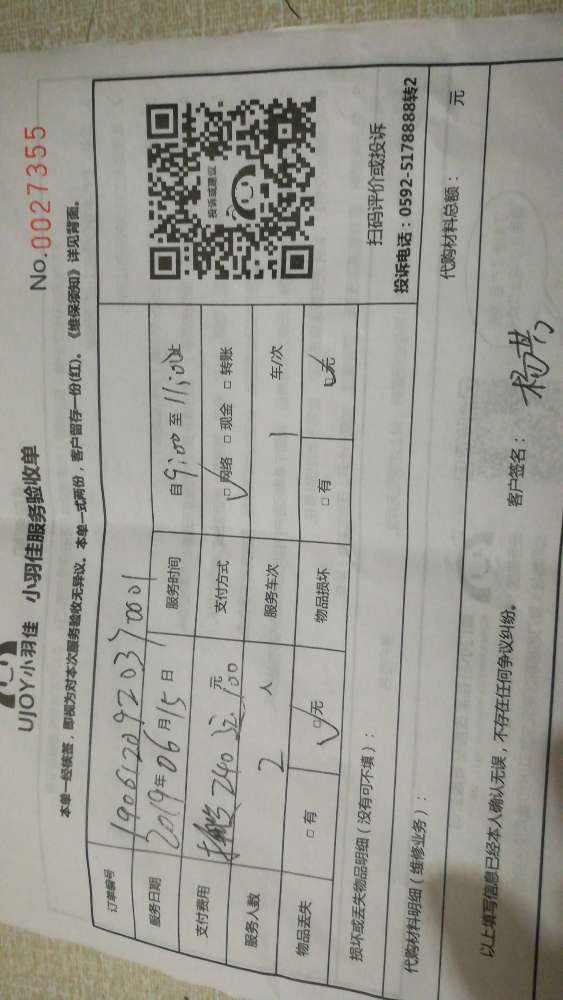 UJOY小羽佳 小羽佳服务验收单
No.0027355
本单一经候签，即视为对本次服务验收无异议。本单一式两份，客户留存一份(红)。《维保须知》详见背面。
订单编号 190612092037 0001
服务日期 2019年06月15日 服务时间 自9:00至11:00止
支付费用 240 元 100 支付方式 □网络 □现金 □转账
服务人数 2 人 服务车次 1 车/次
物品丢失 □有 □无 物品损坏 □有 □无
投诉或建议
扫码评价或投诉
投诉电话：0592-5178888转2
损坏或丢失物品明细（没有可不填）：
代购材料明细（维修业务）： 代购材料总额： 元
以上填写信息已经本人确认无误，不存在任何争议纠纷。 客户签名： 杨